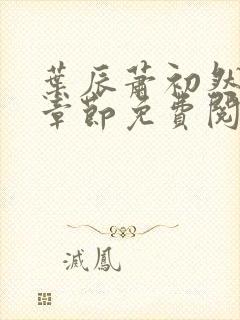 葉辰蕭初然
章節免費閱
滅鳳